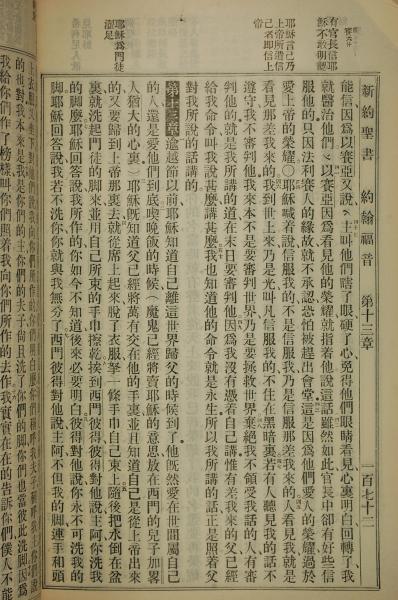 新約聖書 約翰福音 第十三章 一百七十二
有官長信耶
穌不敢明認
耶穌言己乃
上帝所遣信
己者即信上
帝
耶穌爲門徒
濯足
能信因爲以賽亞又說、主叫他們瞎了眼硬了心免得他們眼睛看見心裏明白回轉了我
就醫治他們、以賽亞因爲看見他的榮耀就指着他說這話雖然如此官長中卻有好些信
服他的只因法利賽人的緣故就不承認恐怕被趕出會堂這是因爲他們愛人的榮耀過於
愛上帝的榮耀○耶穌喊着說信服我的不是信服我乃是信服那差我來的人看見我就是
看見那差我來的我到世上來乃是光叫凡信服我的不住在黑暗裏若有人聽見我的話不
遵守我不審判他我來本不是要審判世界乃是要拯救世界棄絕我不領受我話的人有審
判他的就是我所講的道在末日要審判他因爲我沒有憑着自己講惟有差我來的父已經
給我命令叫我說甚麼講甚麼我也知道他的命令就是永生所以我所講的話正是照着父
對我所說的話講的
第十三章 逾越節以前耶穌知道自己離這世界歸父的時候到了他旣然愛在世間屬自己
的人還是愛他們到底喫晚飯的時候(魔鬼已經將賣耶穌的意思放在西門的兒子加畧
人猶大的心裏)耶穌知道父已經將萬有交在他的手裏並且知道自己是從上帝出來
的又要歸到上帝那裏去就從席上起來脫了衣服拏一條手巾自己束上隨後把水倒在盆
裏就洗起門徒的脚來並用自己所束的手巾擦乾挨到西門彼得彼得對他說主阿你洗我
的脚麼耶穌回答說我所作的你如今不知道後來必要明白彼得對他說你永不可洗我的
脚耶穌回答說我若不洗你你就與我無分了西門彼得對他說主阿不但我的脚連手和頭
的也對我本來是我是你們的主你們的夫子尙且洗了你們的脚你們也當彼此洗脚因爲
我給你們作了榜樣叫你們照着我向你們所作的去作我實實在在的告訴你們僕人不能